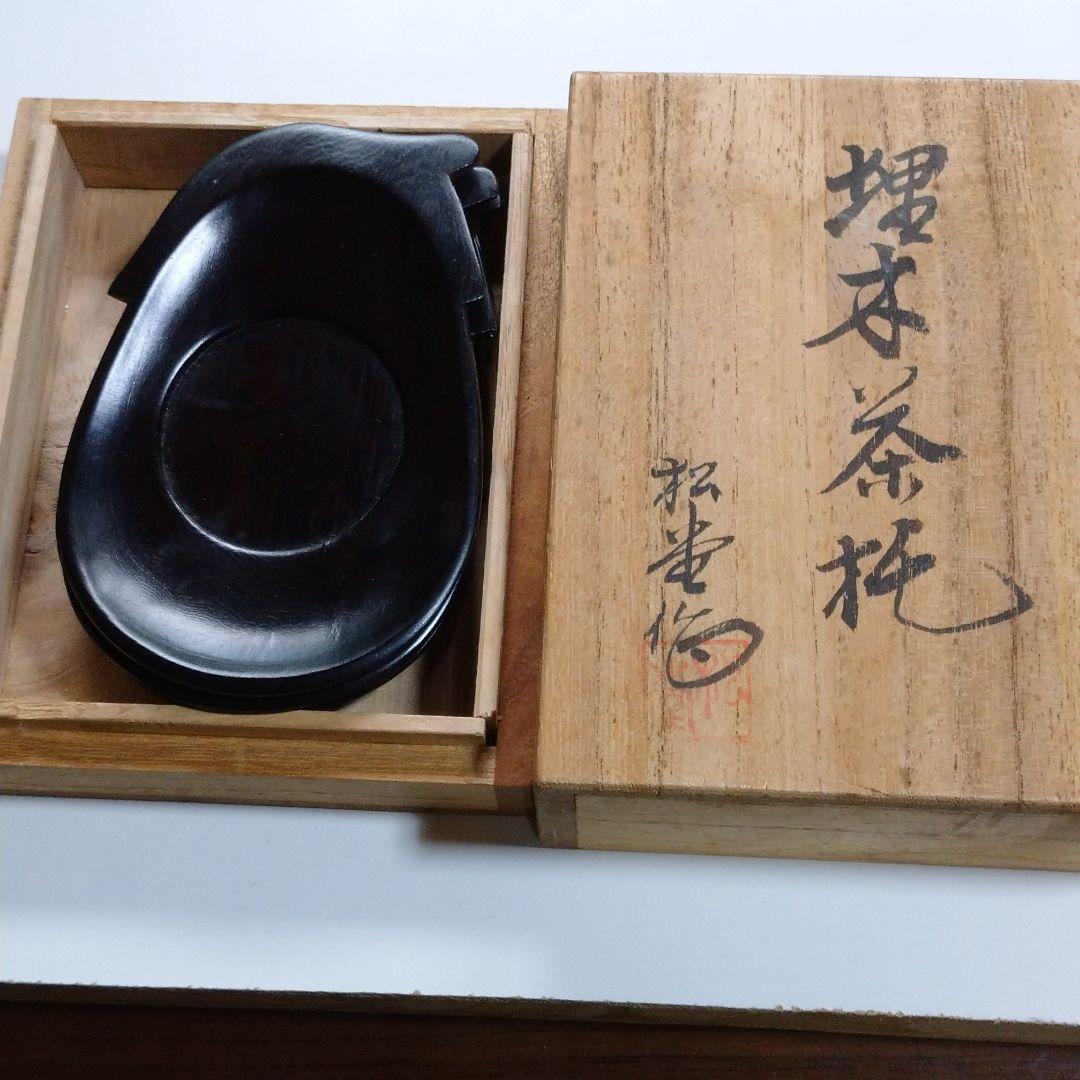 埋木茶托
松堂作